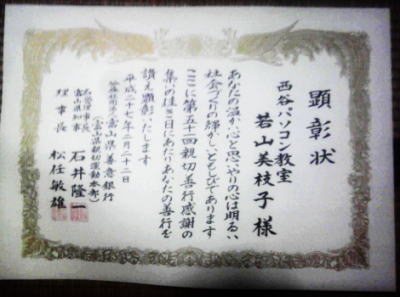 顕彰状
西谷パソコン教室
若山美枝子様
あなたの温か心と思いやりの心は明るい
社会づくりの輝かしいともしびであります
ここに第五十四回親切善行感謝の
集いの佳き日にあたりあなたの善行を
讃え顕彰いたします
平成二十七年二月二十二日
富山県善意銀行
（富山県親切運動本部）
名誉理事長
富山県知事 石井隆一
理事長 松任敏雄